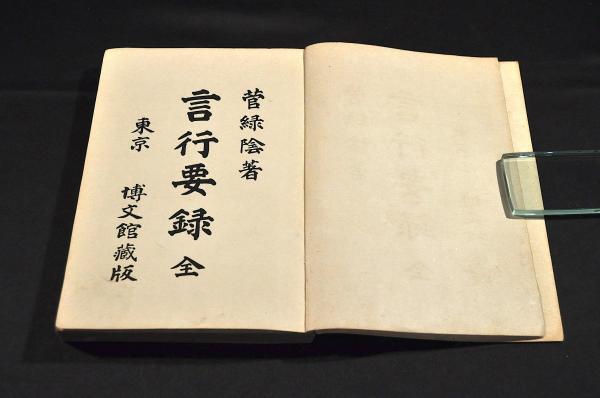 菅緑陰著
言行要録 全
東京 博文館藏版